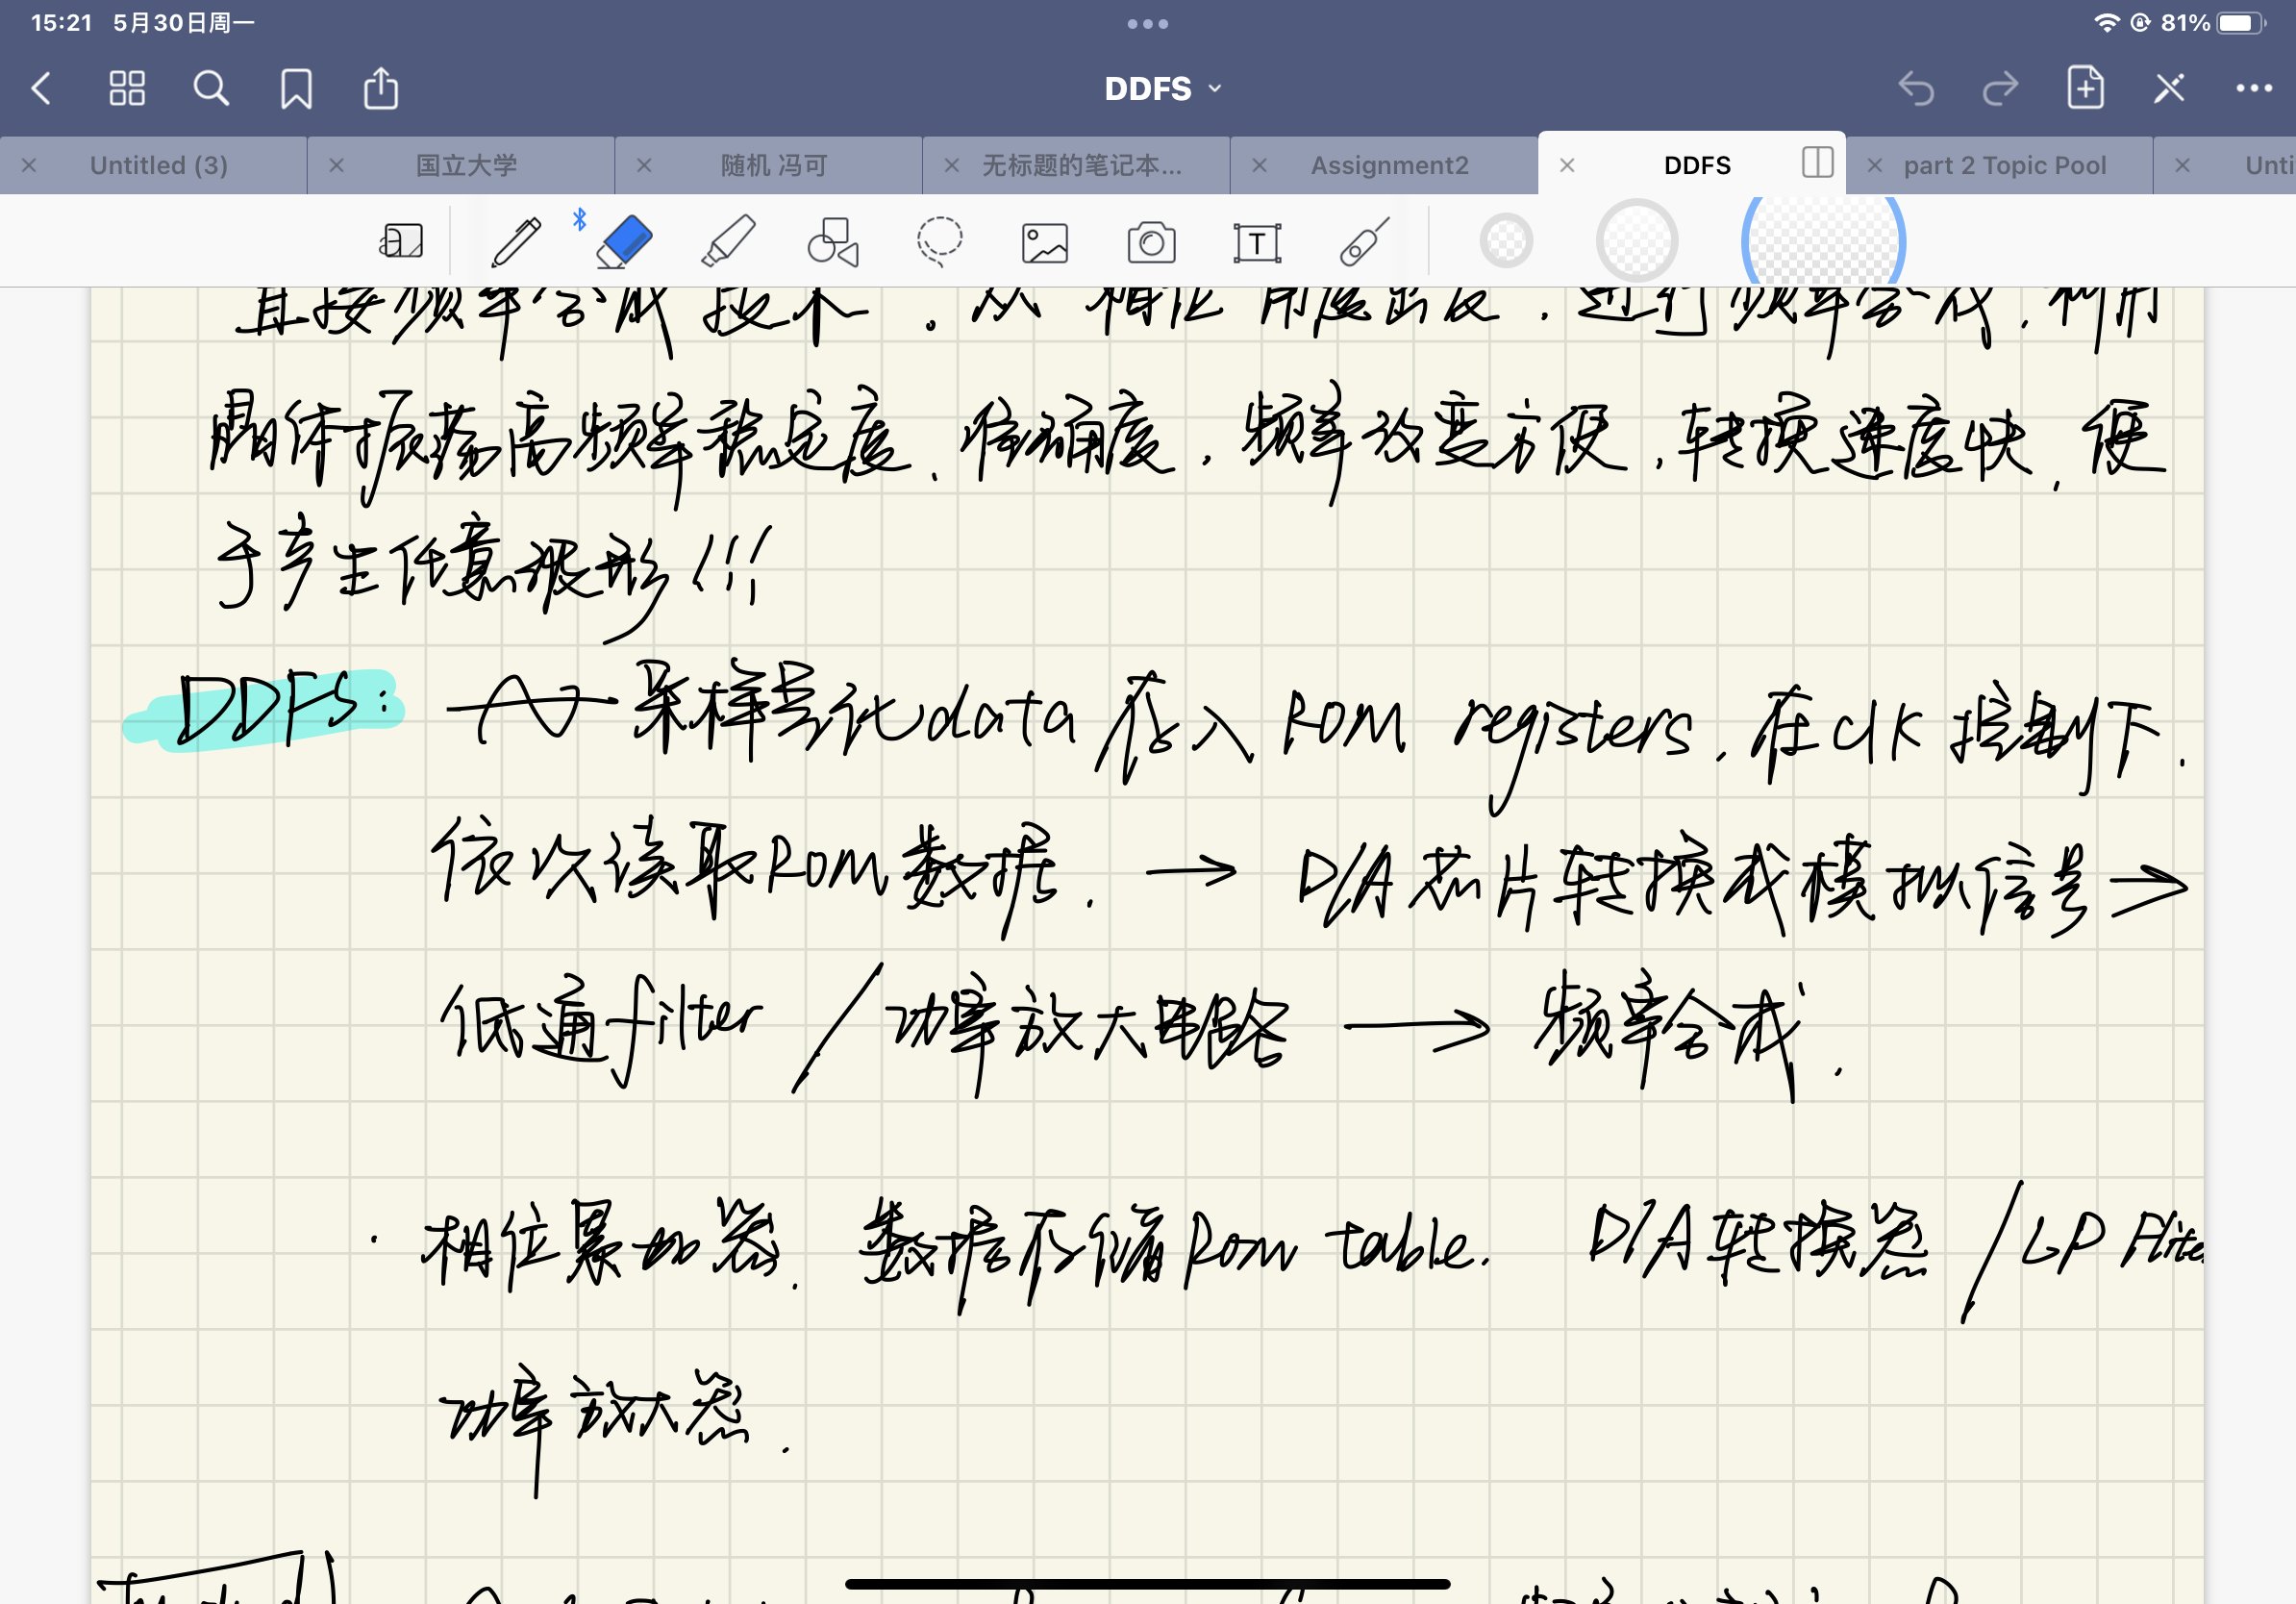 15:21 5月30日周一 81%
DDFS
Untitled (3) 国立大学 随机 冯可 无标题的笔记本... Assignment2 DDFS part 2 Topic Pool Unti
T
直接频率合成技术 . 从相位角度出发 . 进行频率合成 , 利用
晶体振荡高频率稳定度 . 准确度 . 频率改变方便 . 转换速度快 . 便
于产生任意波形!!!
DDFS: 采样量化data存入ROM registers . 在clk控制下 .
依次读取ROM数据 . → D/A芯片转换成模拟信号 →
低通filter / 功率放大电路 → 频率合成 .
· 相位累加器 . 数据存储Rom table. D/A转换器 / LP Filte
功率放大器 .